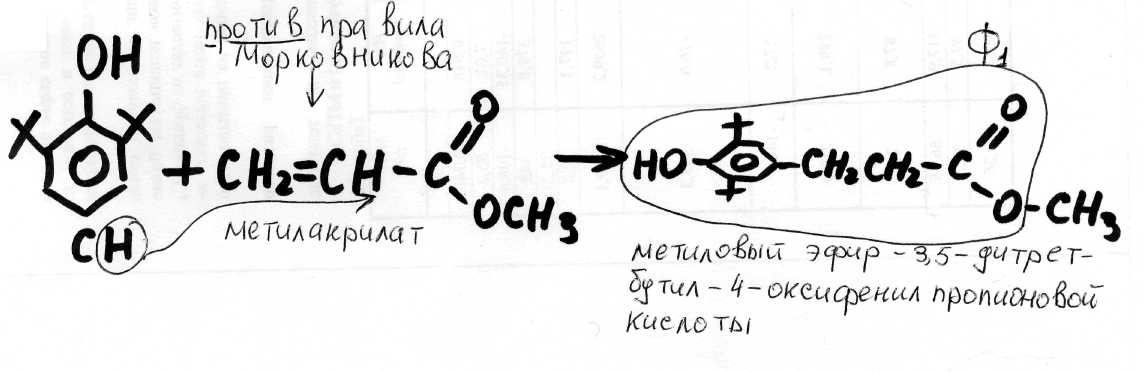 против правила
Морковникова
OH
CH
+
CH₂=CH-C
O
OCH₃
метилакрилат
Ф₁
HO
CH₂CH₂-C
O
O-CH₃
метиловый эфир-3,5-дитрет-
бутил-4-оксифенил пропионовой
кислоты